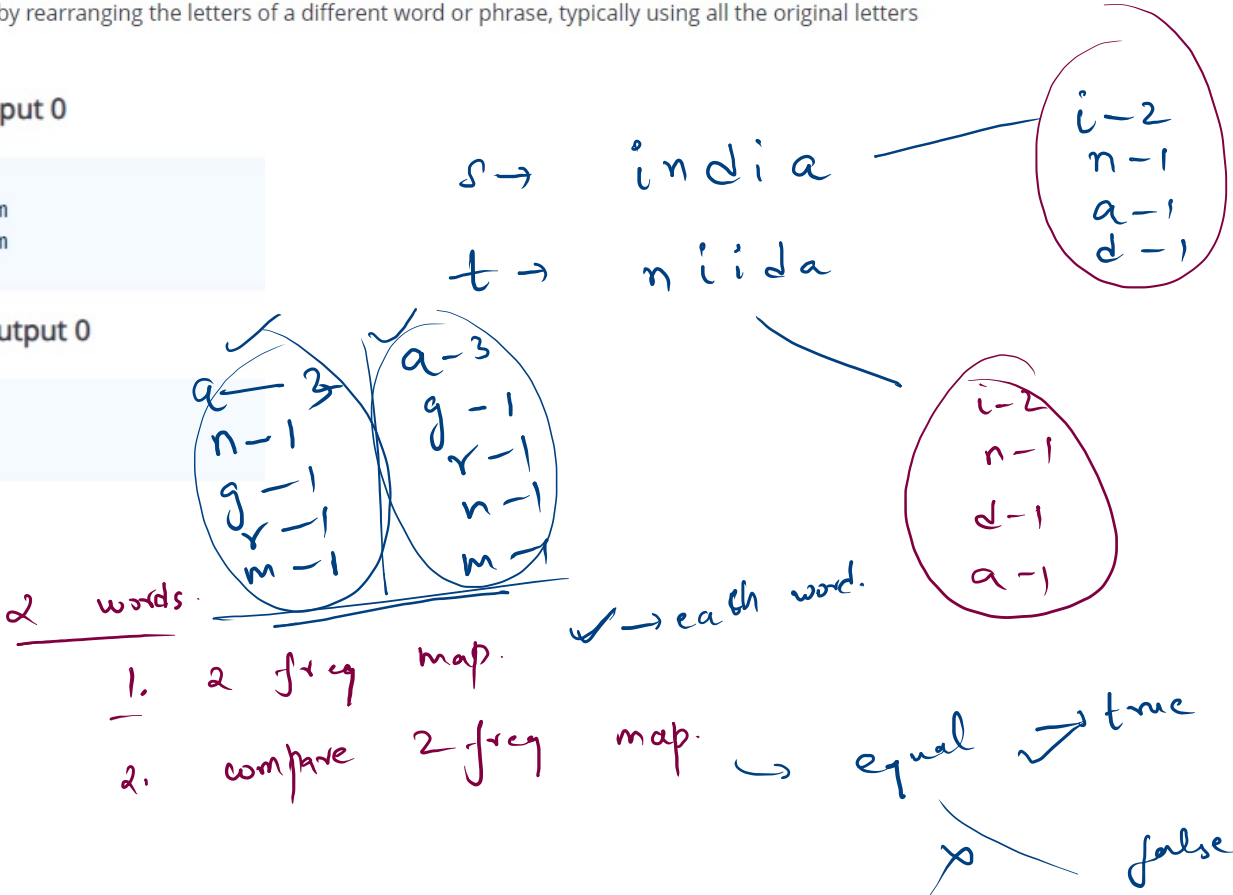 by rearranging the letters of a different word or phrase, typically using all the original letters
put 0
n
n
utput 0
s → india
i-2
n-1
a-1
d-1
t → niida
a-3
n-1
g-1
r-1
m-1
a-3
g-1
r-1
n-1
m-1
i-2
n-1
d-1
a-1
2 words.
✓→ each word.
1. 2 freq map.
2. compare 2 freq map. → equal → true
x false